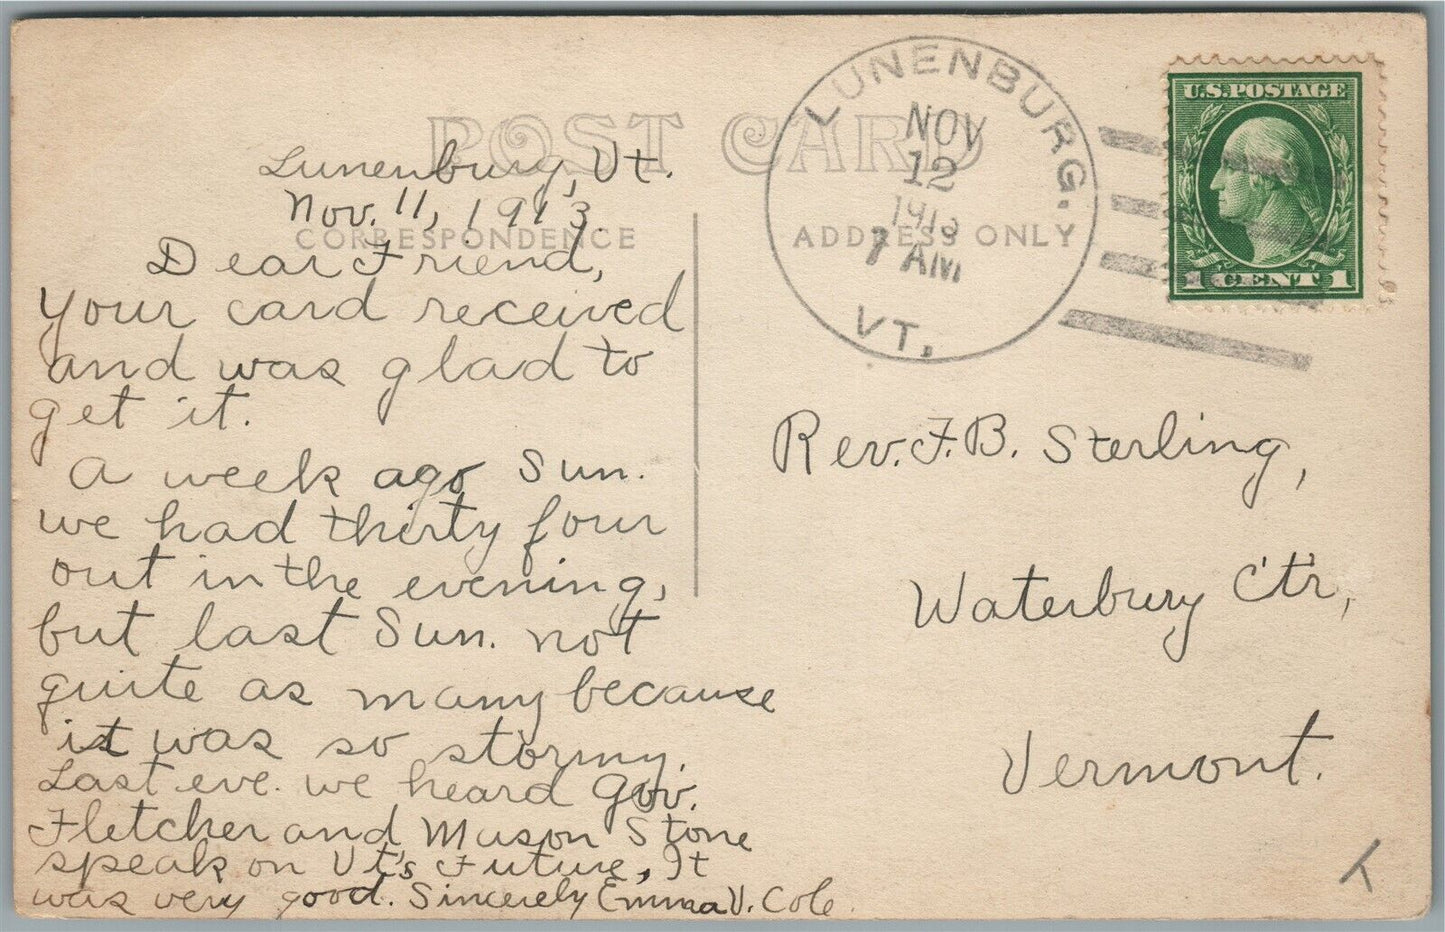 POST CARD
CORRESPONDENCE
ADDRESS ONLY
Lunenburg, Vt.
Nov. 11, 1913.
Dear Friend,
Your card received
and was glad to
get it.
A week ago Sun.
we had thirty four
out in the evening,
but last Sun. not
quite as many because
it was so stormy.
Last eve. we heard Gov.
Fletcher and Mason Stone
speak on Vt's Future, It
was very good. Sincerely Emma V. Cole.
LUNENBURG.
NOV
12
1913
7 AM
VT.
U.S. POSTAGE
1 CENT 1
Rev. F. B. Sterling,
Waterbury Ctr,
Vermont.